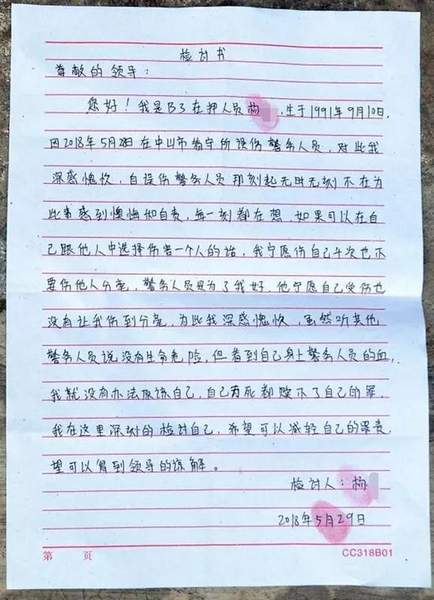 检讨书
尊敬的领导：
您好！我是B3在押人员杨 ，生于1991年9月10日，
因2018年5月 日在中山市 宁所误伤警务人员，对此我
深感愧疚，自误伤警务人员那刻起无时无刻不在为
此事感到懊悔和自责，每一刻都在想，如果可以在自
己跟他人中选择伤害一个人的话，我宁愿伤自己千次也不
要伤他人分毫，警务人员是为了我好，他宁愿自己受伤也
没有让我伤到分毫，为此我深感愧疚，虽然听其他
警务人员说没有生命危险，但看到自己身上警务人员的血，
我就没有办法原谅自己，自己 死都赎不了自己的罪，
我在这里深刻的检讨自己，希望可以减轻自己的罪责，
望可以得到领导的谅解。
检讨人：杨
2018年5月29日
第 页 CC318B01